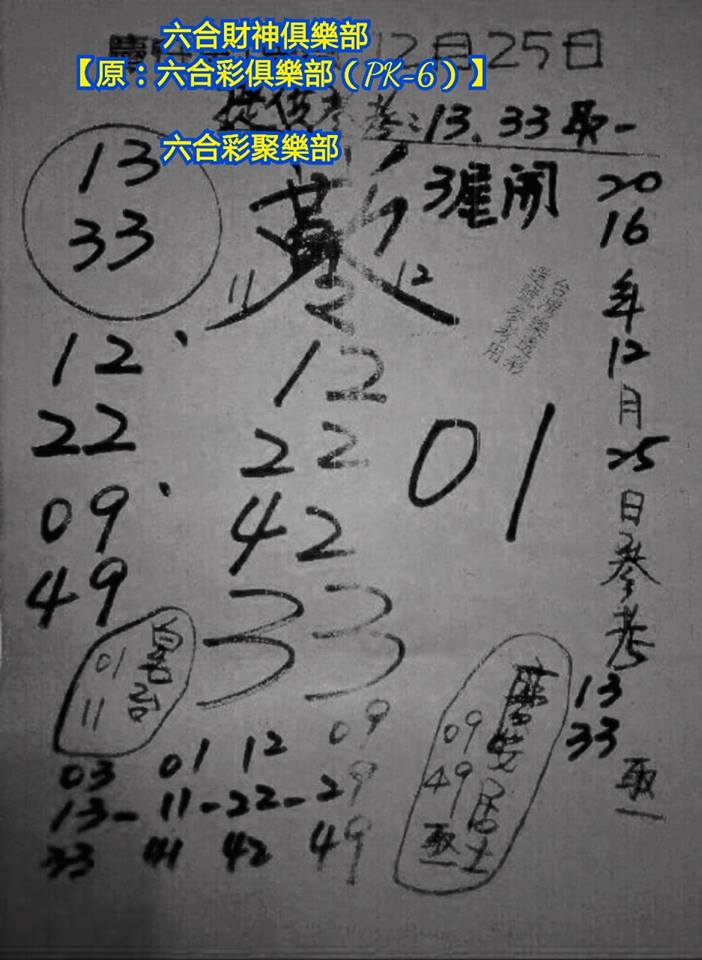 六合財神俱樂部
12月25日
【原：六合彩俱樂部（PK-6）】
提供參考：13.33取一
六合彩聚樂部
13
33
11 12
開
2016年12月25日參考
13
33
取一
台灣樂透彩
選號參考用
12、
22
09、
49
12
22
42
33
01
01
11
09
49
取一
居士
03 01 12 09
13-11-22-29
33 41 42 49